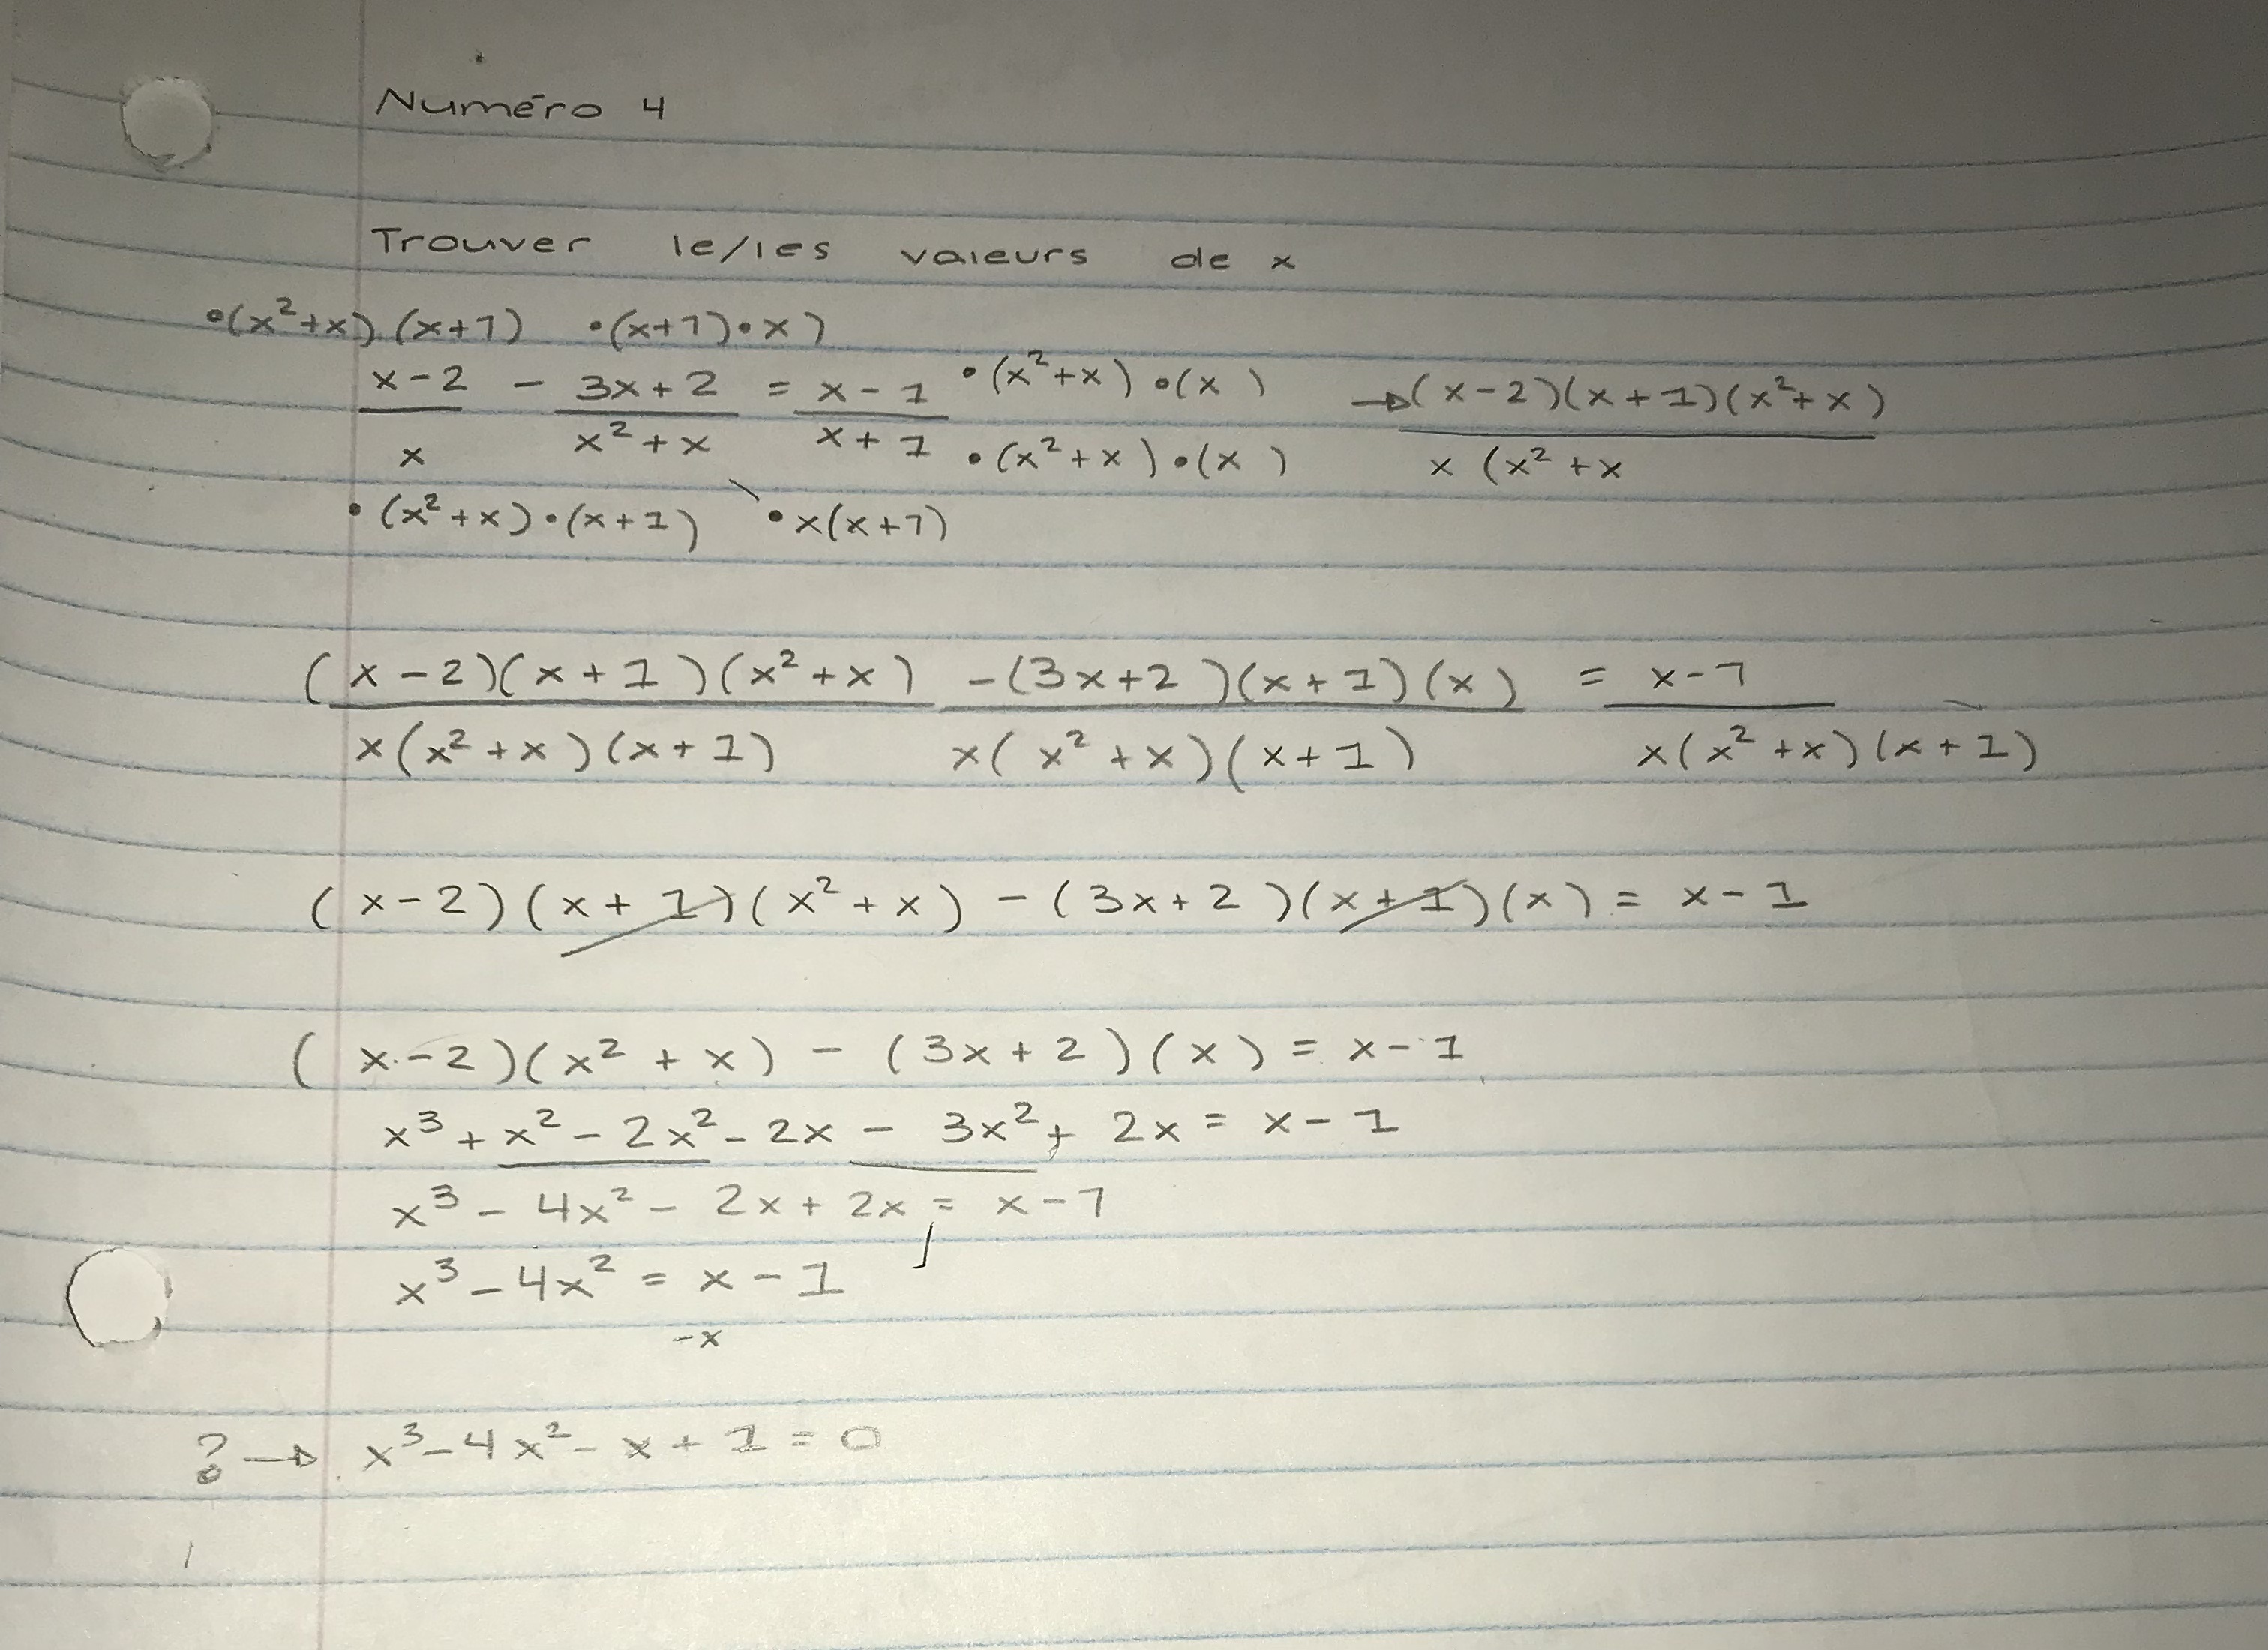 Numéro 4
Trouver le/les valeurs de x
•(x²+x).(x+1) •(x+1)•x)
x-2 - 3x+2 = x-1 •(x²+x)•(x) →(x-2)(x+1)(x²+x)
x x²+x x+1 •(x²+x)•(x) x(x²+x
•(x²+x)•(x+1) •x(x+1)
(x-2)(x+1)(x²+x) -(3x+2)(x+1)(x) = x-1
x(x²+x)(x+1) x(x²+x)(x+1) x(x²+x)(x+1)
(x-2)(x+1)(x²+x) - (3x+2)(x+1)(x) = x-1
(x-2)(x²+x) - (3x+2)(x) = x-1
x³+x²-2x²-2x-3x²+2x = x-1
x³-4x²-2x+2x = x-1
x³-4x² = x-1
-x
? → x³-4x²-x+1=0